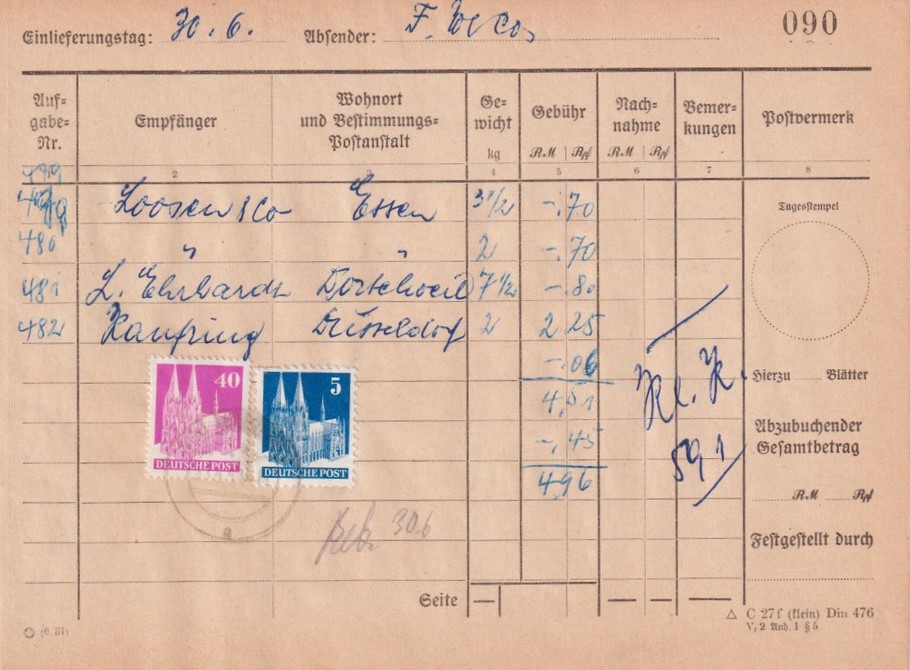 090
Einlieferungstag: 30.6. Absender: F. W. & Co,
Auf= gabe= Nr. Empfänger Wohnort und Bestimmungs= Postanstalt Ge= wicht kg Gebühr RM Rpf Nach= nahme RM Rpf Bemer= kungen Postvermerk
2 4 5 6 7 8
Loosen & Co Essen 3 1/2 -.70
480 " " 2 -.70
481 L. Ehrhardt 7 1/2 -.80
482 Kaufring Düsseldorf 2 2 25
-.06
4,51
-,45
4 96
Kl. K.
591
30.6
40
DEUTSCHE POST
5
DEUTSCHE POST
a
Tagesstempel
Hierzu ...... Blätter
Abzubuchender
Gesamtbetrag
RM Rpf
Festgestellt durch
Seite
(6. 31)
C 27f (klein) Din 476
V, 2 Anh. 1 § 5